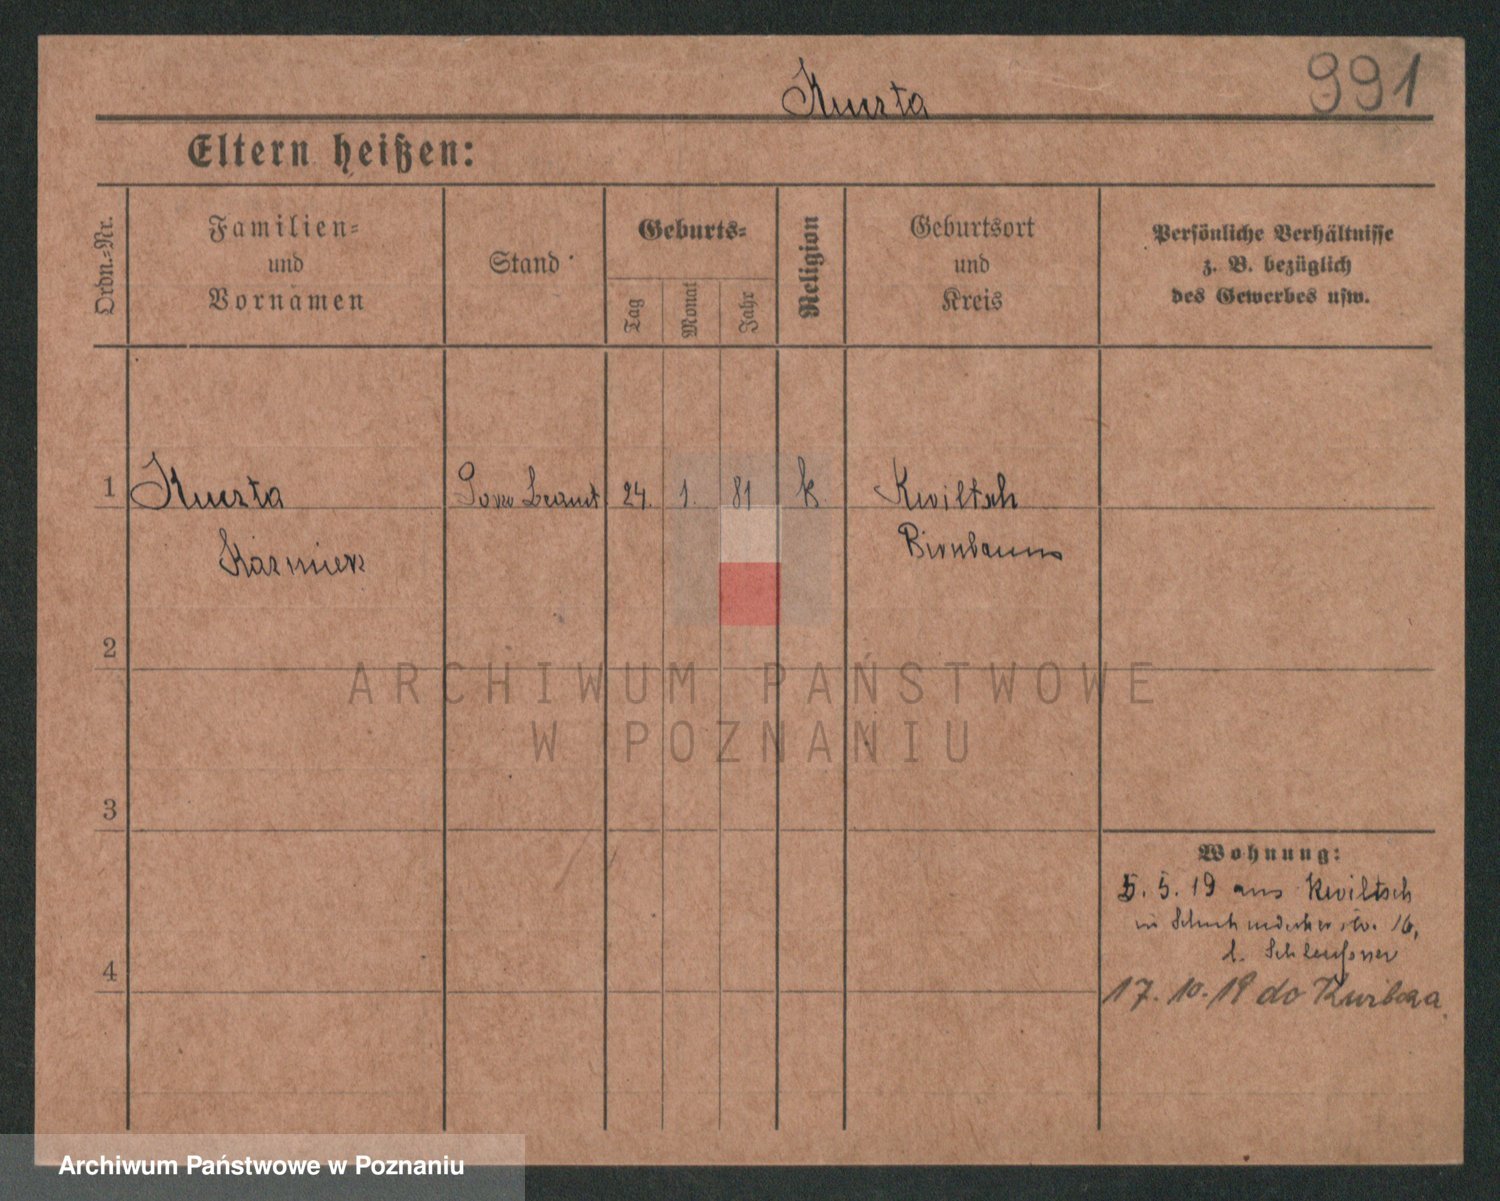 Kurzta
991
Eltern heißen:
Ordn.-Nr.
Familien-
und
Vornamen
Stand
Geburts-
Tag
Monat
Jahr
Religion
Geburtsort
und
Kreis
Persönliche Verhältnisse
z. B. bezüglich
des Gewerbes usw.
1
24. 1. 81 k.
Kwiltsch
Birnbaum
2
3
4
Wohnung:
5. 5. 19 aus Kwiltsch
in 16,
b.
17. 10. 19 do
ARCHIWUM PAŃSTWOWE
W POZNANIU
Archiwum Państwowe w Poznaniu